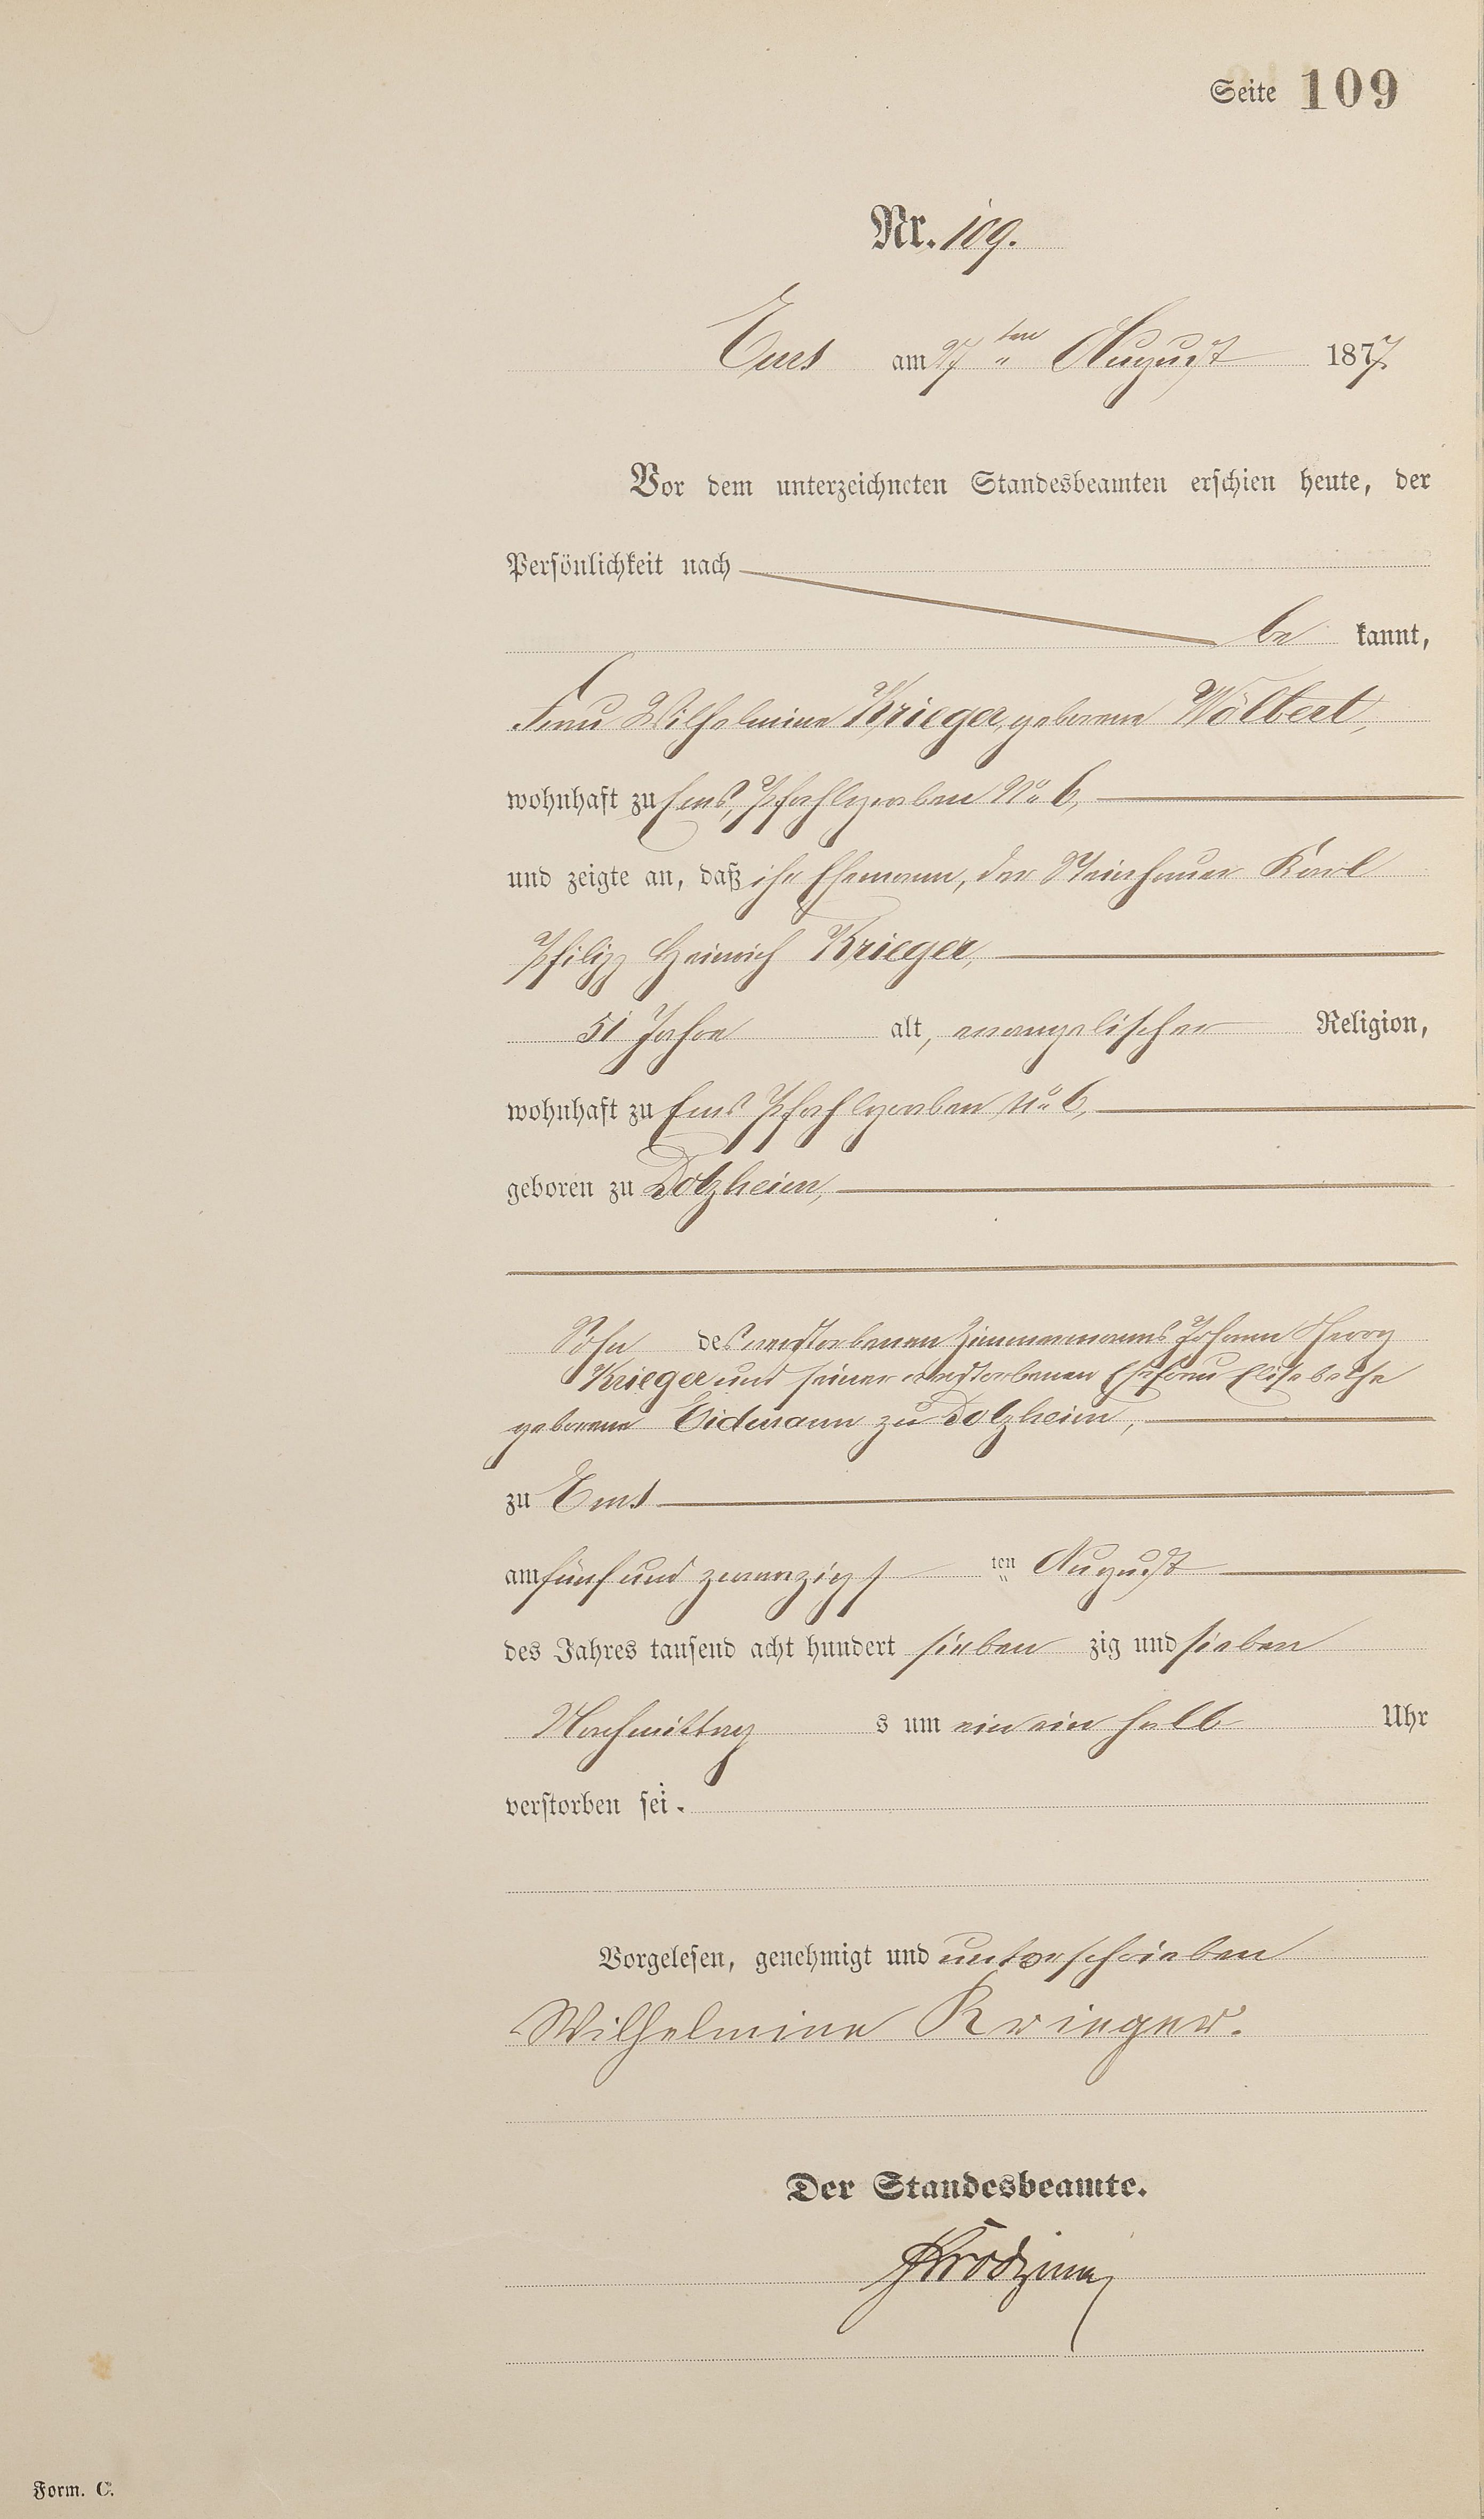 Seite 109
Nr. 109.
Ems am 27 ten August 1877.
Vor dem unterzeichneten Standesbeamten erschien heute, der
Persönlichkeit nach
be kannt,
Frau Wilhelmine Krieger, geborene Wölbert,
wohnhaft zu Ems, Pfahlgraben No 6,
und zeigte an, daß ihr Ehemann, der Steinhauer Karl
Philipp Heinrich Krieger,
51 Jahre alt, evangelischer Religion,
wohnhaft zu Ems Pfahlgraben No 6,
geboren zu Dotzheim,
Sohn des verstorbenen Zimmermanns Johann
Krieger und seiner verstorbenen Ehefrau Elisabethe
geborene Eidmann zu Dotzheim,
zu Ems
am fünf und zwanzigs ten August
des Jahres tausend acht hundert sieben zig und sieben
Nachmittag s um ein ein halb Uhr
verstorben sei.
Vorgelesen, genehmigt und unterschrieben
Wilhelmine Krieger.
Der Standesbeamte.
Form. C.